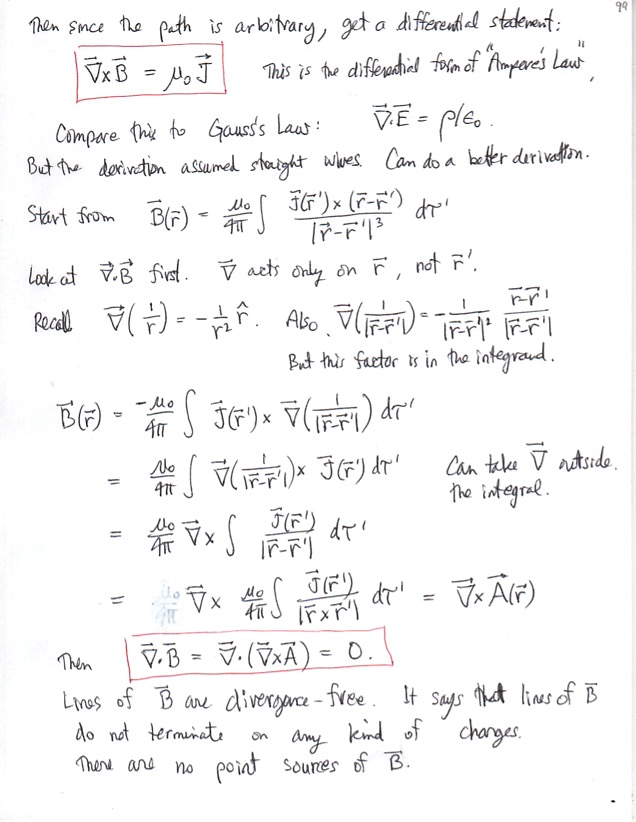 99
Then since the path is arbitrary, get a differential statement:
∇⃗×B⃗ = μ₀ J⃗ This is the differential form of "Ampere's Law",
Compare this to Gauss's Law: ∇⃗·E⃗ = ρ/ε₀.
But the derivation assumed straight wires. Can do a better derivation.
Start from B⃗(r⃗) = μ₀/4π ∫ J⃗(r⃗')×(r⃗-r⃗')/|r⃗-r⃗'|³ dτ'
Look at ∇⃗·B⃗ first. ∇⃗ acts only on r⃗, not r⃗'.
Recall ∇⃗(1/r) = -1/r² r̂. Also ∇⃗(1/|r⃗-r⃗'|) = -1/|r⃗-r⃗'|² r⃗-r⃗'/|r⃗-r⃗'|
But this factor is in the integrand.
B⃗(r⃗) = -μ₀/4π ∫ J⃗(r⃗')× ∇⃗(1/|r⃗-r⃗'|) dτ'
= μ₀/4π ∫ ∇⃗(1/|r⃗-r⃗'|)× J⃗(r⃗') dτ' Can take ∇⃗ outside.
the integral.
= μ₀/4π ∇⃗× ∫ J⃗(r⃗')/|r⃗-r⃗'| dτ'
= ∇⃗× μ₀/4π ∫ J⃗(r⃗')/|r⃗×r⃗'| dτ' = ∇⃗×A⃗(r⃗)
Then ∇⃗·B⃗ = ∇⃗·(∇⃗×A⃗) = 0.
Lines of B⃗ are divergence-free. It says that lines of B⃗
do not terminate on any kind of charges.
There are no point sources of B⃗.